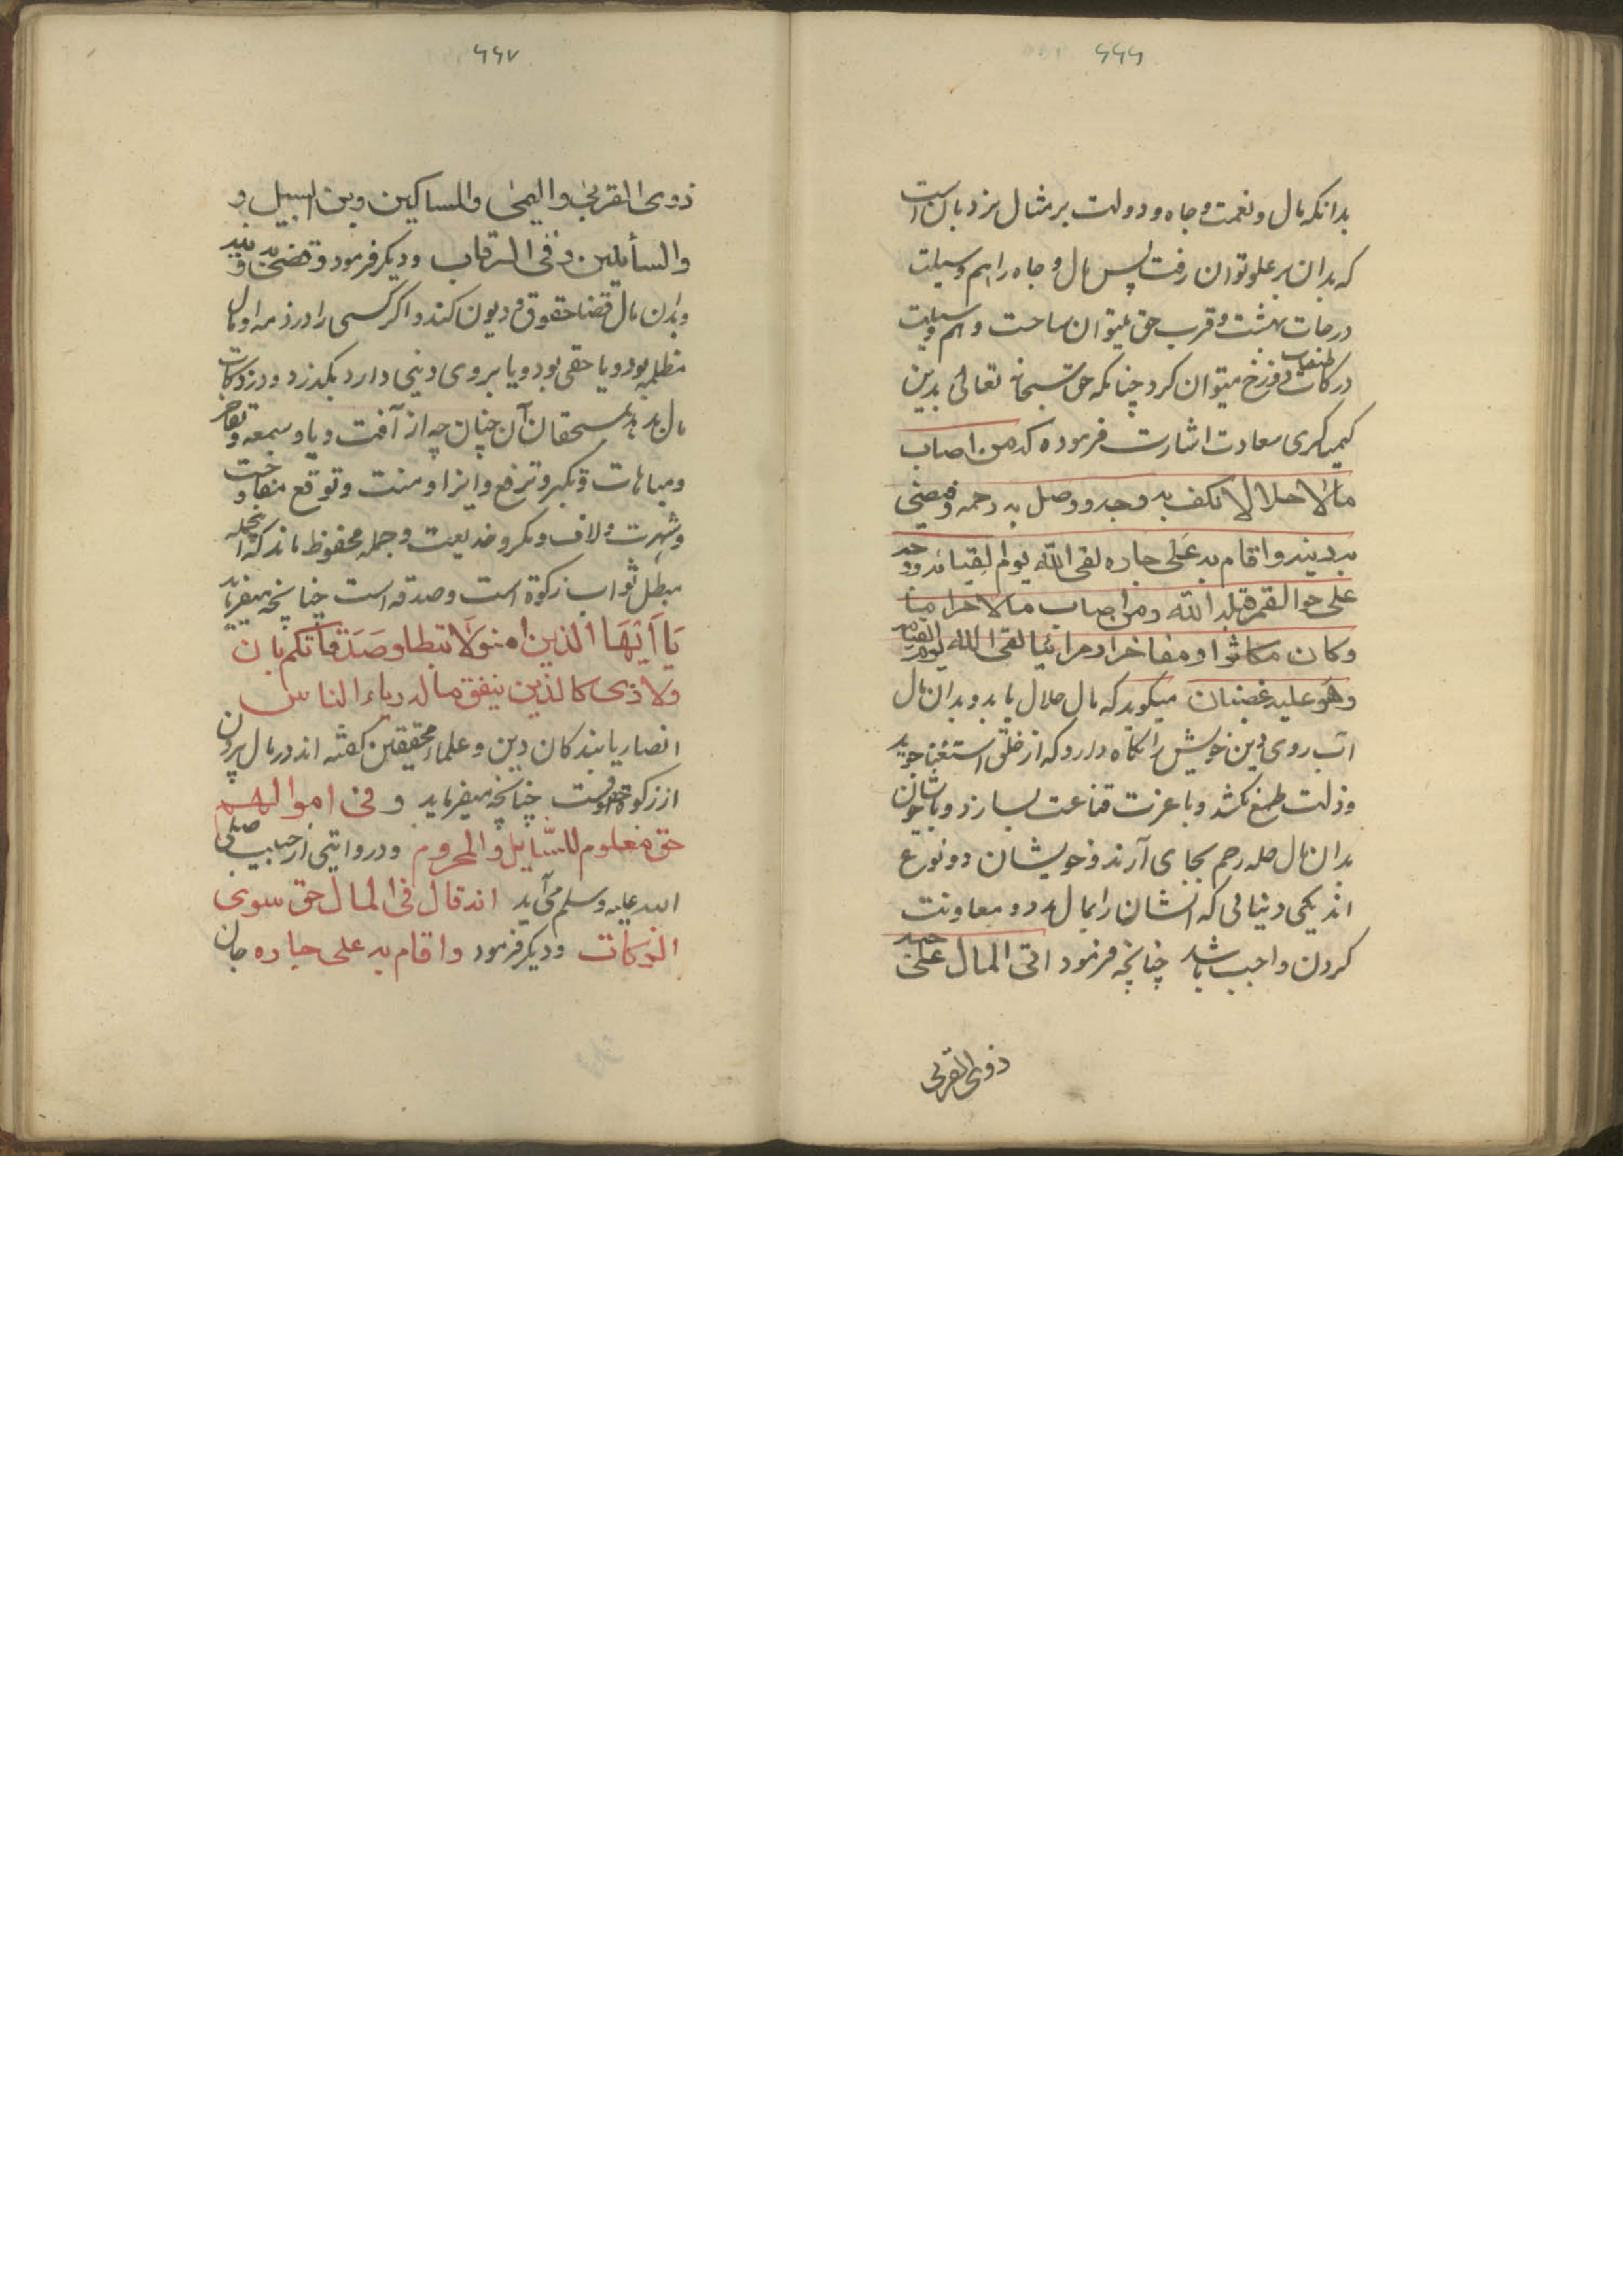 ۶۶۶
بدانکه مال و نعمت و جاه و دولت بر مثال نردبان است
که بدان بر علو توان رفت پس مال و جاه را هم وسیلت
درجات بهشت و قرب حق میتوان ساخت و هم وسیلت
درکات طبقات دوزخ میتوان کرد چنانکه حق سبحانه تعالی بدین
کیمیاگری سعادت اشارت فرموده که من اصاب
مالا حلالا لا نکف به وجهه ووصل به رحمه وقضی
به دینه واقام به علی جاره لقی الله یوم القیامه ووجهه
علی حوالقمر لیله البدر ومن اصاب مالا حراما
وکان مکاثرا ومفاخرا ومرائیا لقی الله یوم القیامه
وهو علیه غضبان میکوید که مال حلال یابد وبدان مال
آب روی دین خویش را نکاه دارد که از خلق استغنا جوید
و ذلت طمع نکشد و با عزت قناعت بسازد و با
بدان مال صله رحم بجای آرند و خویشان دو نوع
اند یکی دنیائی که ایشان را بمال مدد و معاونت
کردن واجب باشد چنانچه فرمود اتی المال علی حبه
ذوی القربی
۶۶۷
ذوی القربی والیتمی والمساکین وبن السبیل و
والسأیلین و فی الرقاب و دیکر فرمود وقضی به دینه
وبدان مال قضا حقوق و دیون کند و اکر کسی را در ذمه او مال
مظلمه بود و یا حقی بود و یا بر وی دینی دارد بکذرد و در زکات
مال بدهد بمستحقان آن چنان چه از آفت ریا و سمعه و تفاخر
و مباهات و تکبر و ترفع و ایذا و منت و توقع
و شهرت و لاف و مکر و خدیعت و جمله محفوظ ماند که
مبطل ثواب زکوة است و صدقه است چنانچه میفرماید
یَا اَیُّهَا الذین امنو لَا تبطلو صَدَقَاتکم بان
ولا ذی کالذین ینفق ماله ریاء الناس
انصار یابندکان دین و علماء محققین کفته اند در مال برون
از زکوة حقوقست چنانچه میفرماید و فی اموالهم
حق معلوم للسّایل و المحروم و در روایتی از حبیب صلی
الله علیه وسلم می آید انه قال فی المال حق سوی
الزکات و دیکر فرمود واقام به علی جاره جان